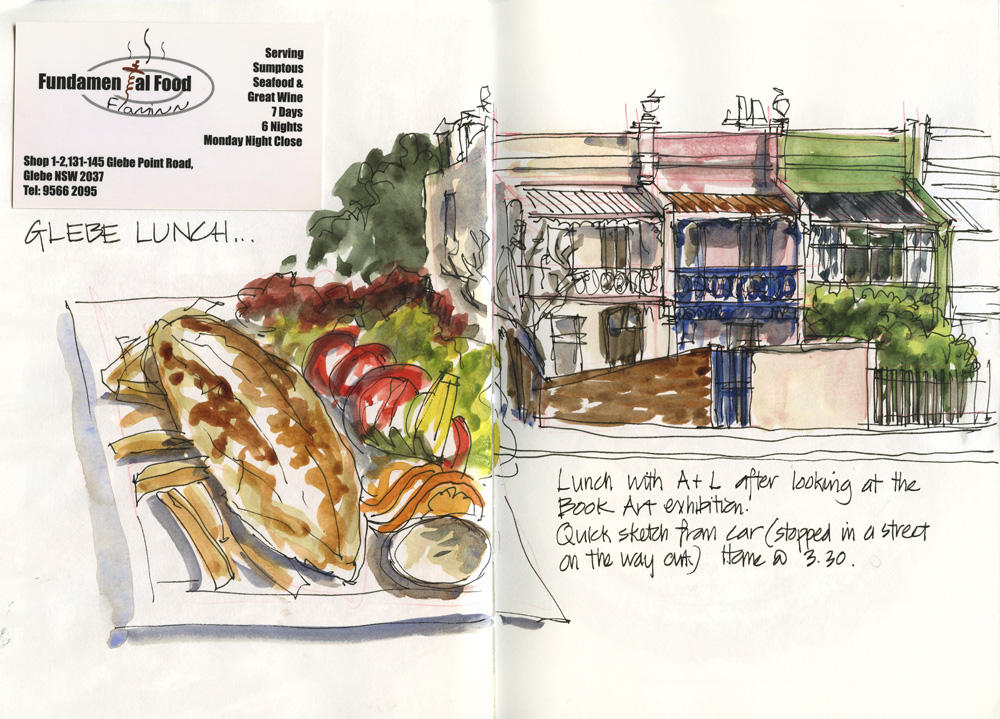 Fundamental Food
Flaminn
Serving
Sumptous
Seafood &
Great Wine
7 Days
6 Nights
Monday Night Close
Shop 1-2,131-145 Glebe Point Road,
Glebe NSW 2037
Tel: 9566 2095
GLEBE LUNCH...
Lunch with A+L after looking at the
Book Art exhibition.
Quick sketch from car (stopped in a street
on the way out.) Home @ 3.30.